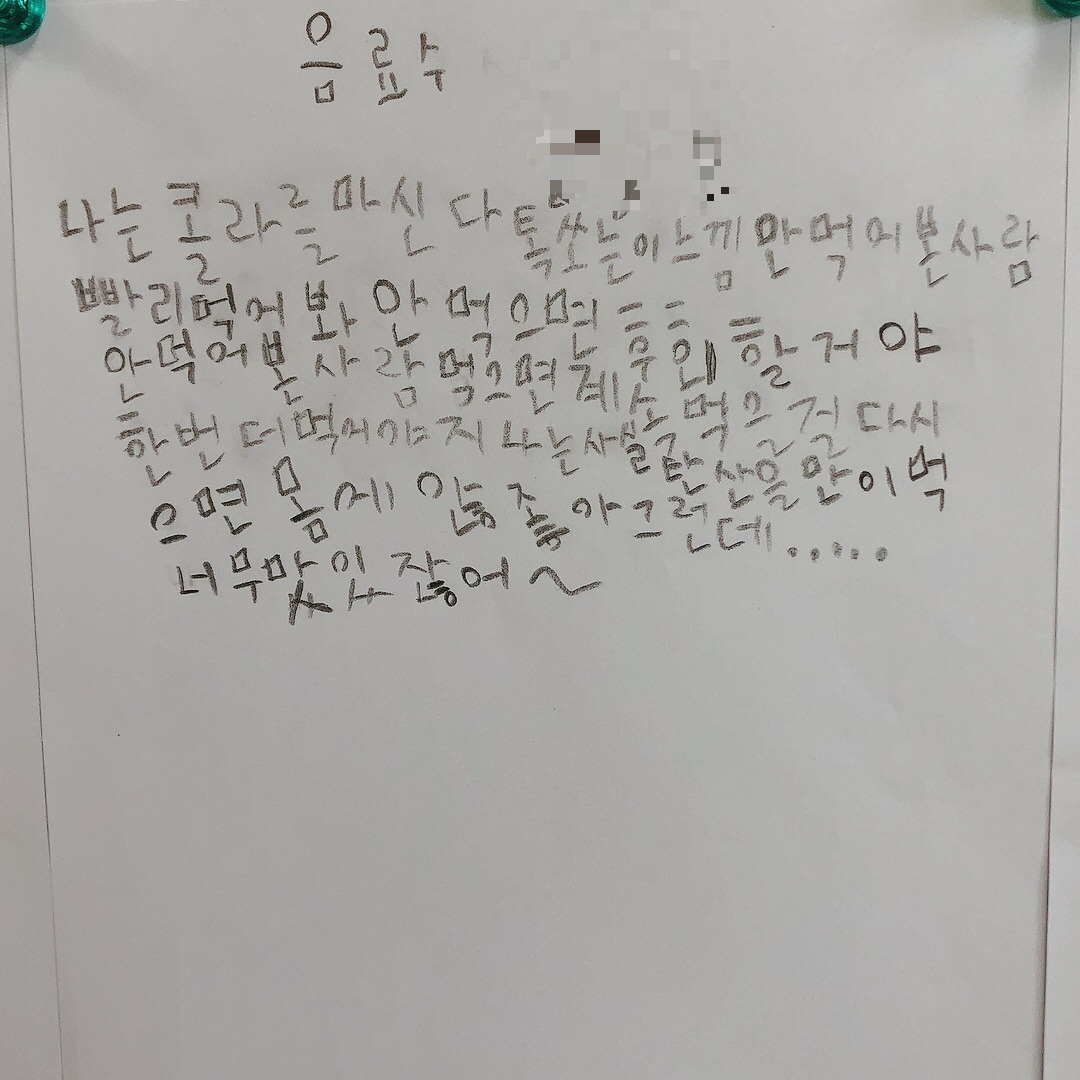 음료수
나는 콜라를 마신다 톡쏘는이느낌 안먹어본사람
빨리먹어봐 안먹으면 후회할거야
안먹어본사람 먹으면 계속먹으걸 다시
한번더먹어야지 나는사실 탄산을많이먹
으면 몸에 않좋아 그런데.....
너무맛있잖어~